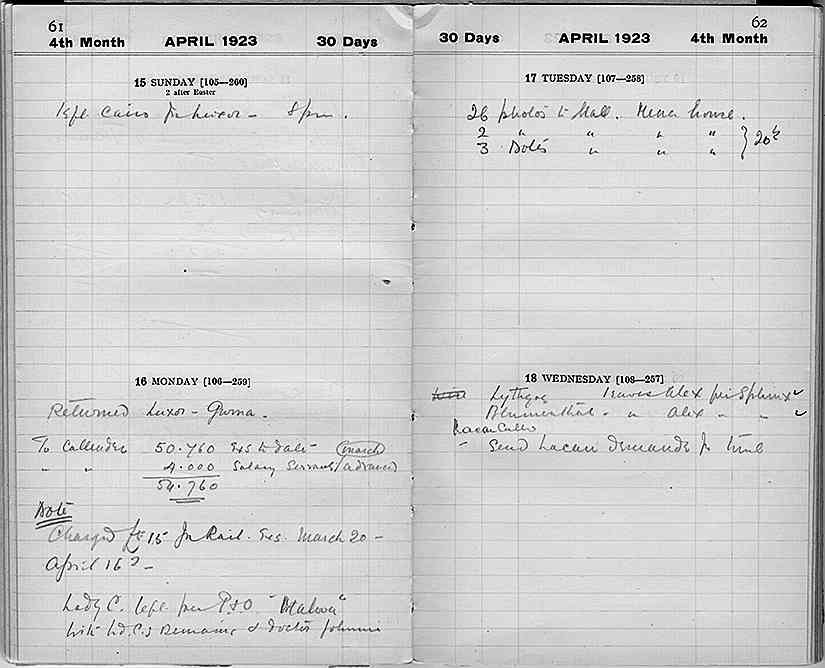 61
4th Month APRIL 1923 30 Days
15 SUNDAY [105—260]
2 after Easter
left Cairo for Luxor — 8 pm.
16 MONDAY [106—259]
Returned Luxor - Gurna.
To Callender 50.760 Exs to date — (march)
" " 4.000 Salary Servants/advanced
54.760
Note
Charged £15 for Rail. Exs. March 20 —
April 16
Lady C. left per P & O "Malwa"
with Ld. C.'s Remains & doctor Johnnie
62
30 Days APRIL 1923 4th Month
17 TUESDAY [107—258]
26 photos to Hall. Mena house.
2 " " " "
3 Notes " " " } 20½
18 WEDNESDAY [108—257]
Lythgoe leaves Alex per Sphinx
Blumenthal - " Alex - "
Lacau
- Send Lacau demande for